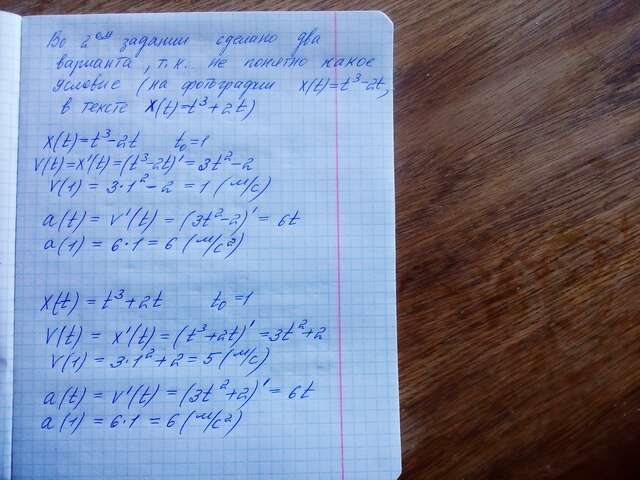 Во 2ом задании сделано два
варианта, т.к. не понятно какое
условие (на фотографии x(t)=t³-2t,
в тексте x(t)=t³+2t)
x(t)=t³-2t t₀=1
v(t)=x'(t)=(t³-2t)'=3t²-2
v(1)=3·1²-2=1 (м/с)
a(t)=v'(t)=(3t²-2)'=6t
a(1)=6·1=6 (м/с²)
x(t)=t³+2t t₀=1
v(t)=x'(t)=(t³+2t)'=3t²+2
v(1)=3·1²+2=5 (м/с)
a(t)=v'(t)=(3t²+2)'=6t
a(1)=6·1=6 (м/с²)